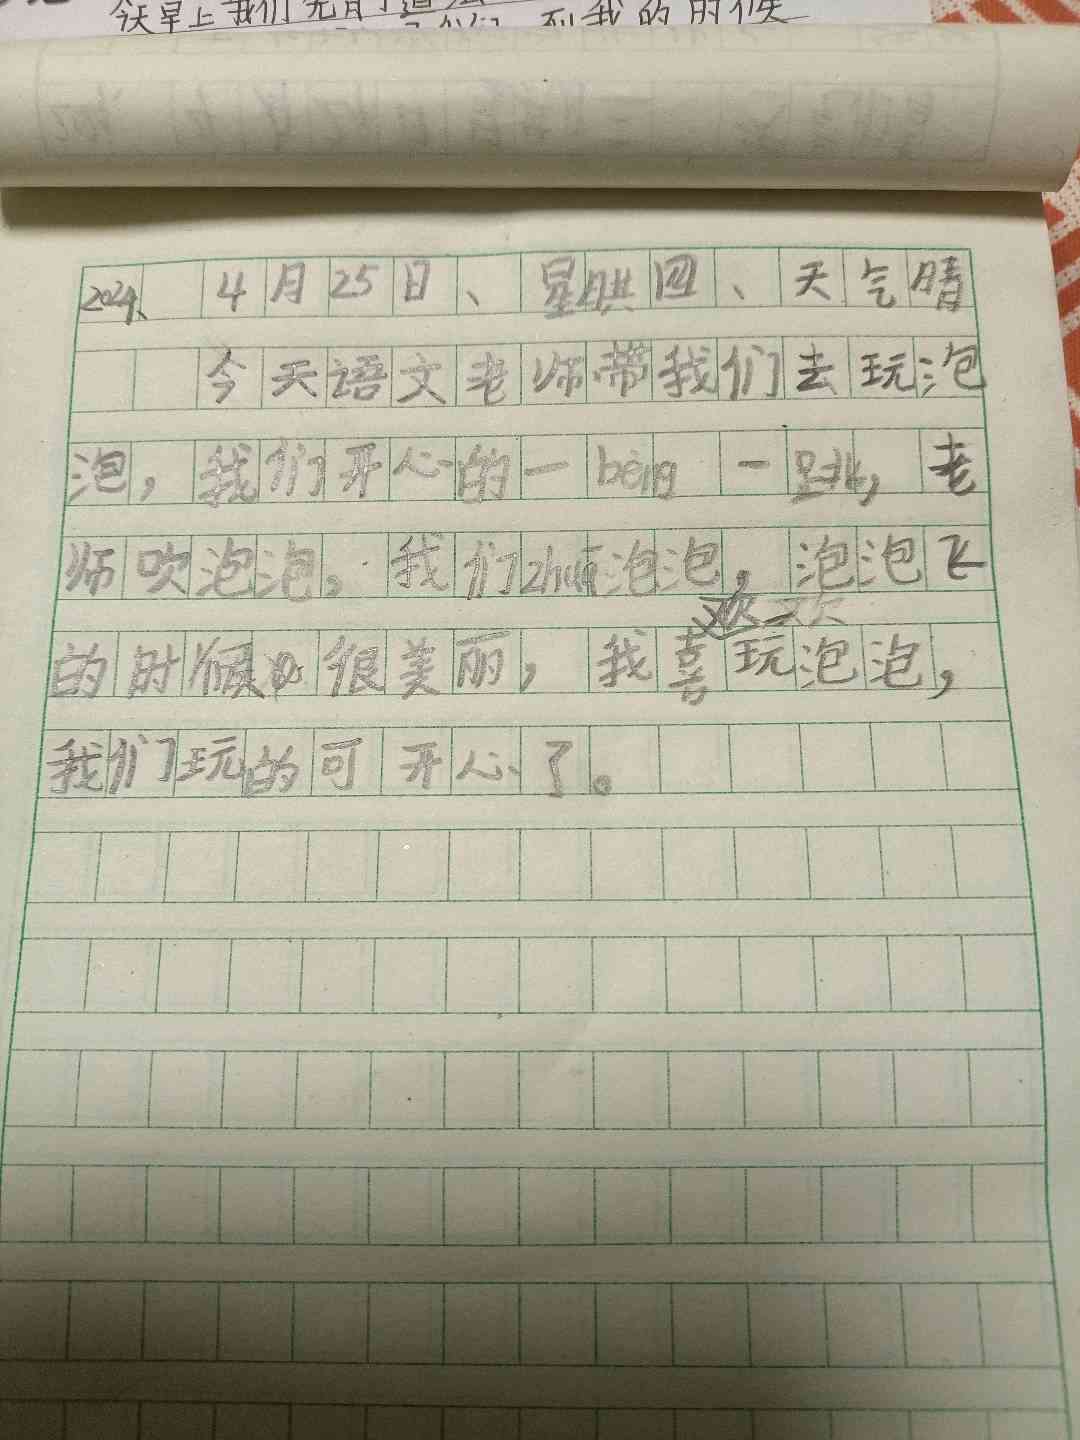 今天早上我们
到我的时候
2024、4月25日、星期四、天气晴
今天语文老师带我们去玩泡
泡，我们开心的一bèng一跳，老
师吹泡泡，我们zhuī泡泡，泡泡飞
欢欢
的时候很美丽，我喜玩泡泡，
我们玩的可开心了。